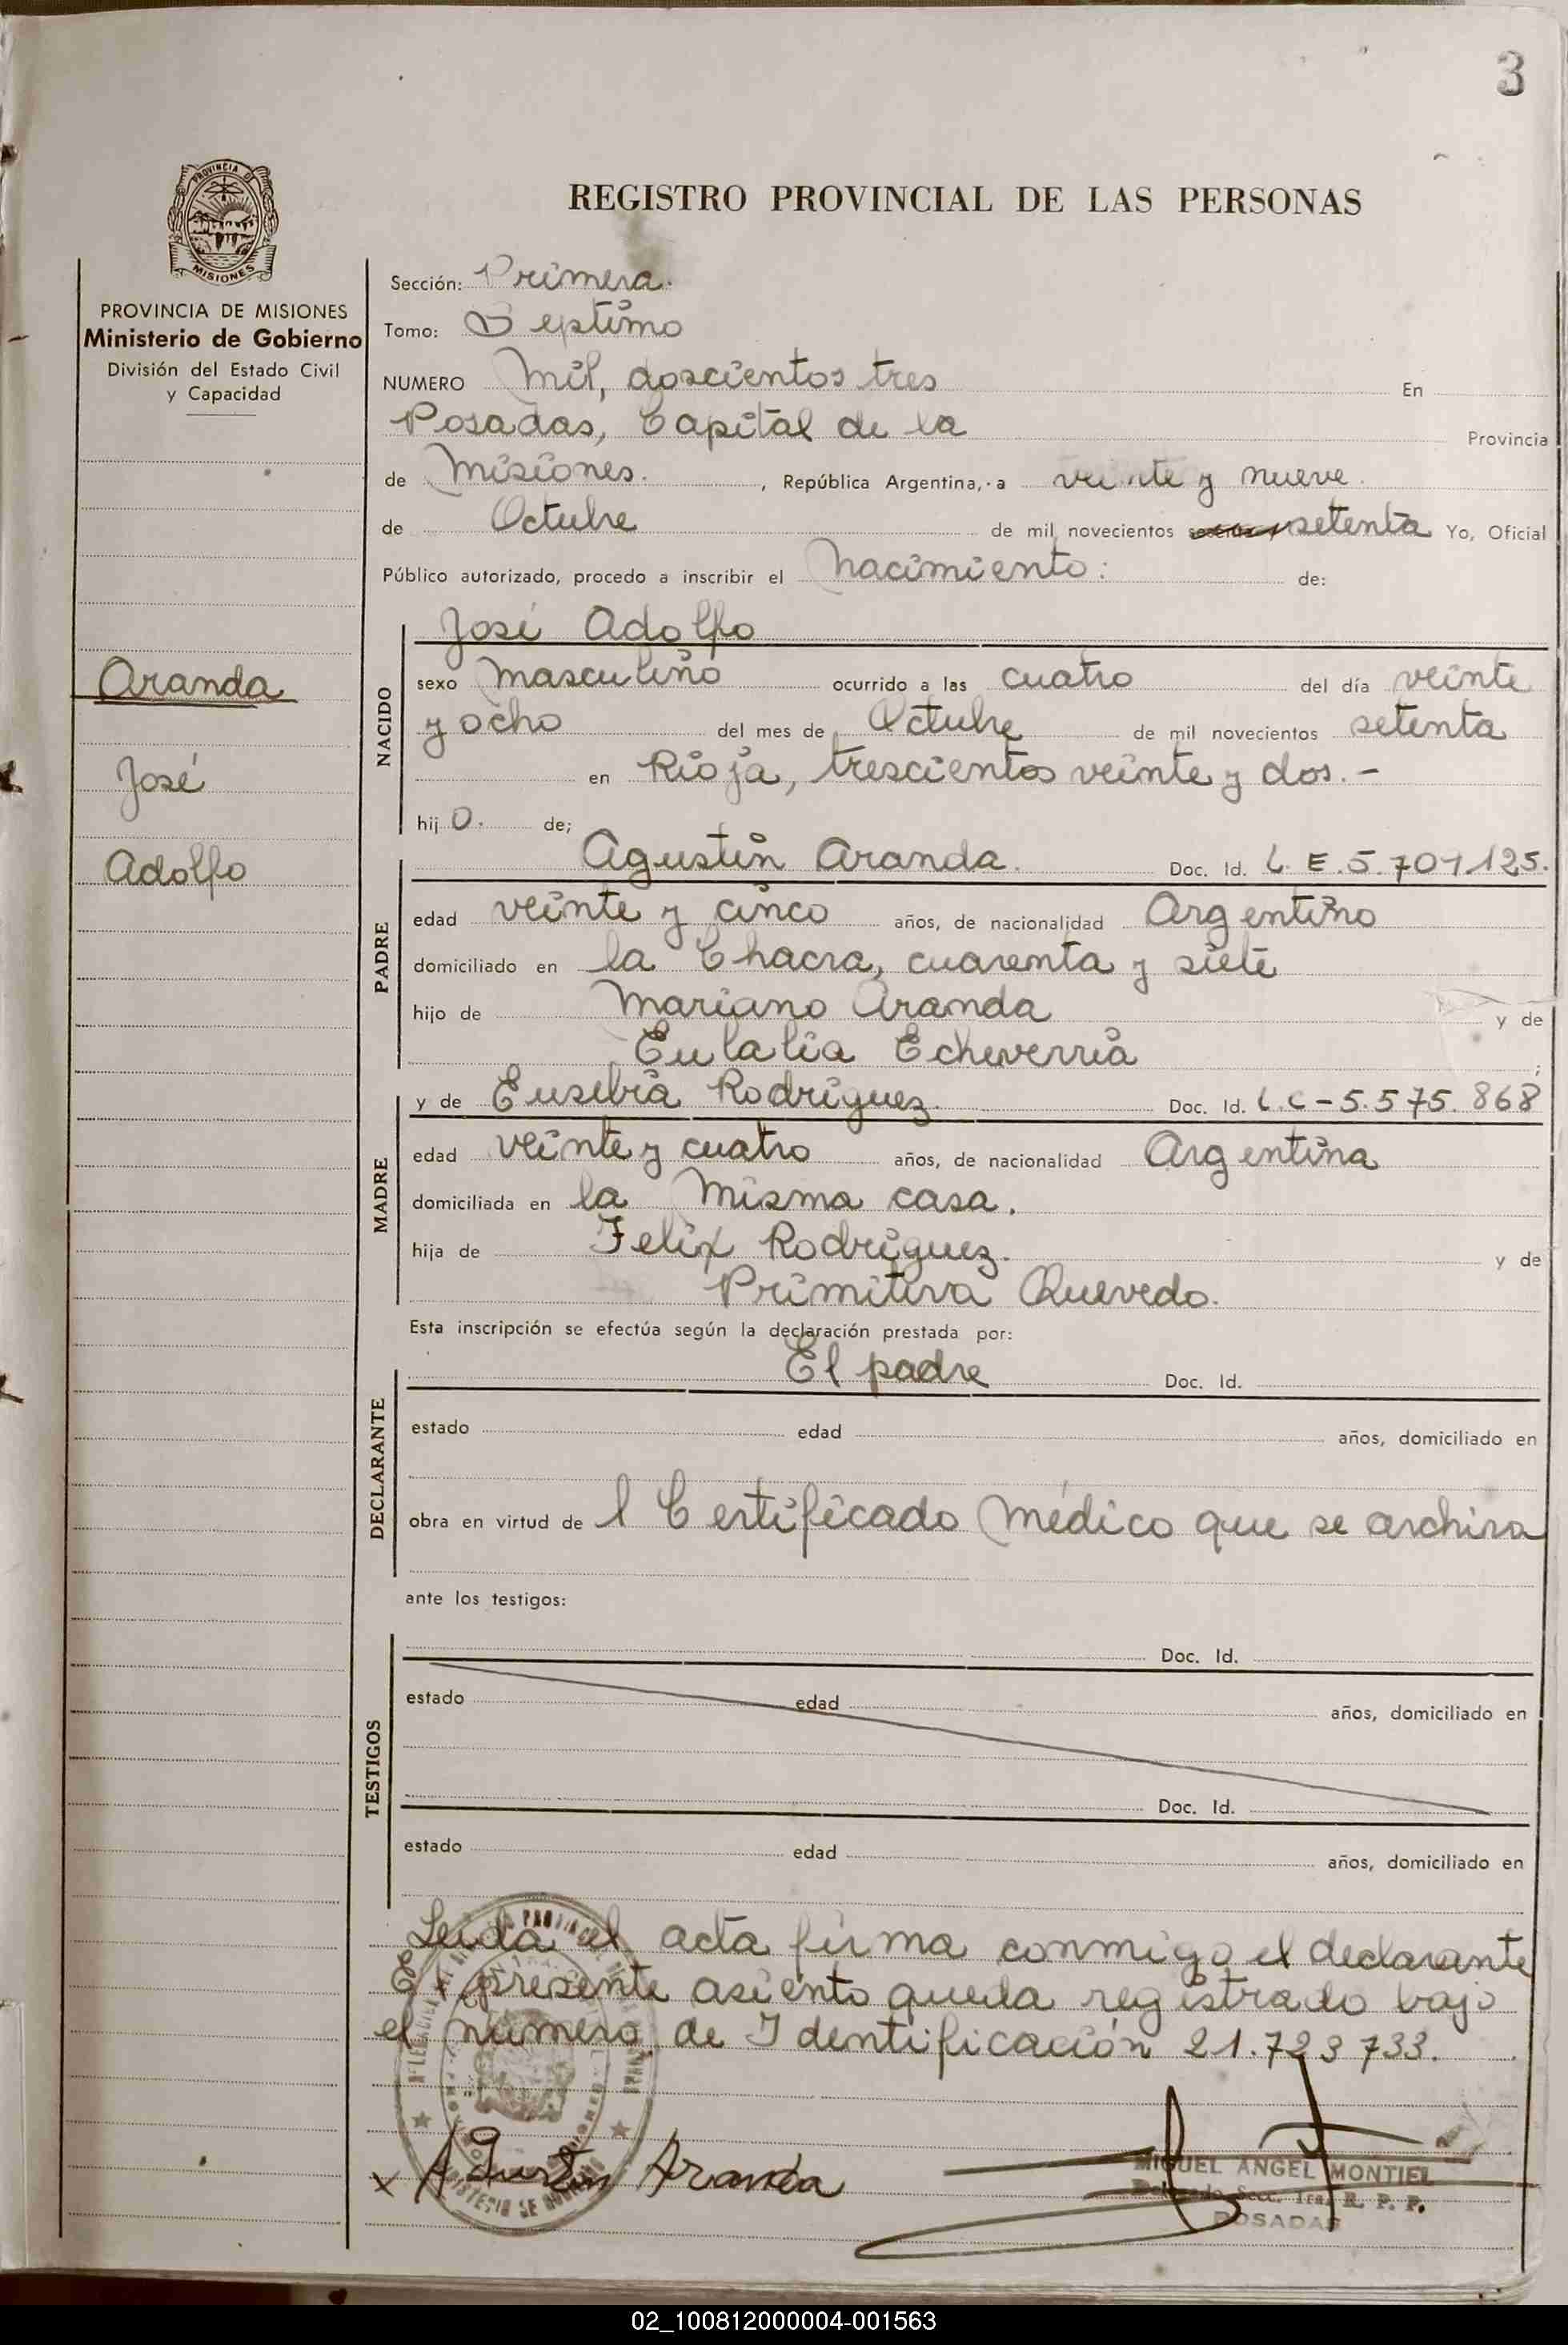 3
PROVINCIA DE MISIONES
PROVINCIA DE MISIONES
Ministerio de Gobierno
División del Estado Civil
y Capacidad
Aranda
José
Adolfo
REGISTRO PROVINCIAL DE LAS PERSONAS
Sección: Primera.
Tomo: Septimo
NUMERO Mil, doscientos tres En
Posadas, Capital de la Provincia
de Misiones. , República Argentina, a veinte y nueve.
de Octubre de mil novecientos setenta Yo, Oficial
Público autorizado, procedo a inscribir el Nacimiento: de:
NACIDO
José Adolfo
sexo Masculino ocurrido a las cuatro del día veinte
y ocho del mes de Octubre de mil novecientos setenta
en Rioja, trescientos veinte y dos.-
hijo. de;
PADRE
Agustín Aranda. Doc. Id. L.E.5.709.125.
edad veinte y cinco años, de nacionalidad Argentino
domiciliado en la Chacra, cuarenta y siete
hijo de Mariano Aranda y de
Eulalia Echeverría ;
MADRE
y de Eusebia Rodríguez. Doc. Id. L.C-5.575.868
edad veinte y cuatro años, de nacionalidad Argentina
domiciliada en la Misma casa.
hija de Felix Rodríguez. y de
Primitiva Quevedo.
Esta inscripción se efectúa según la declaración prestada por:
DECLARANTE
El padre Doc. Id.
estado edad años, domiciliado en
obra en virtud de l Certificado Médico que se archiva
ante los testigos:
TESTIGOS
Doc. Id.
estado edad años, domiciliado en
Doc. Id.
estado edad años, domiciliado en
Leída el acta firma conmigo el declarante
El presente asiento queda registrado bajo
el número de Identificación 21.723733.
x Agustín Aranda
MIGUEL ANGEL MONTIEL
Delegado Secc. 1ra. R. P. P.
POSADAS
02_100812000004-001563